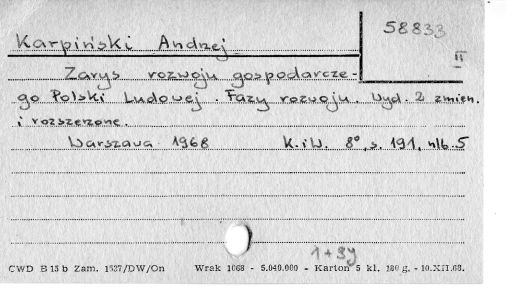 58833
Karpiński Andrzej
II
Zarys rozwoju gospodarcze-
go Polski Ludowej. Fazy rozwoju. Wyd. 2 zmien.
i rozszerzone.
Warszawa 1968 K.iW. 8°, s. 191, nlb. 5
1+3y
CWD B 15 b Zam. 1537/DW/On Wrak 1068 - 5.040.000 - Karton 5 kl. 180 g. - 10.XII.68.